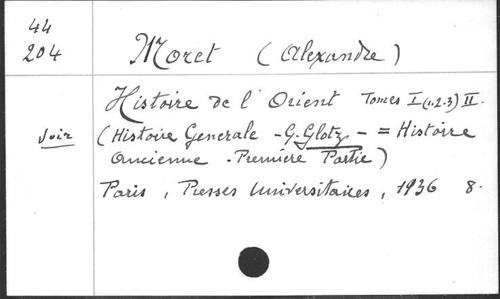 44
204
Moret (Alexandre)
Histoire de l'Orient Tomes I (1.2.3) II.
Voir (Histoire Generale - G. Glotz - = Histoire
ancienne - Premiere Partie)
Paris, Presses Universitaires, 1936 8.